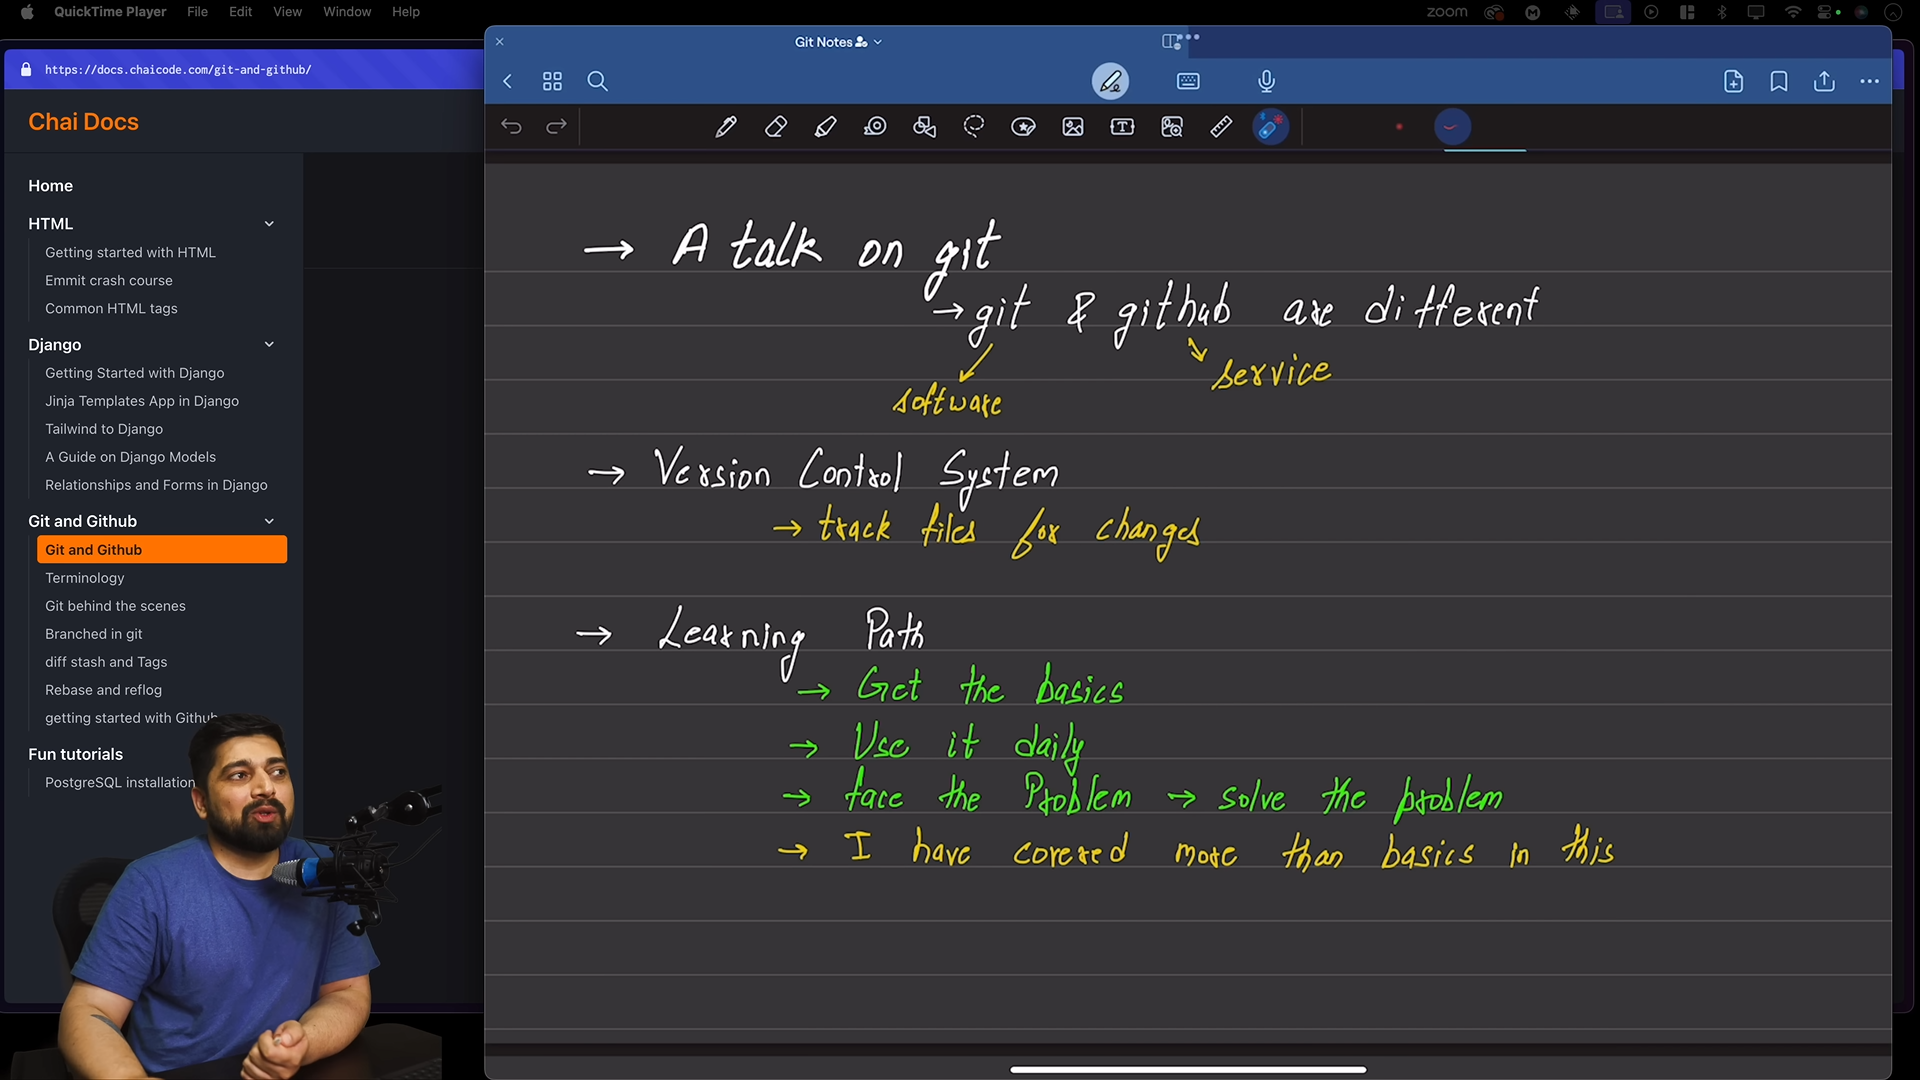 QuickTime Player File Edit View Window Help
zoom
Git Notes
https://docs.chaicode.com/git-and-github/
Chai Docs
Home
HTML
Getting started with HTML
Emmit crash course
Common HTML tags
Django
Getting Started with Django
Jinja Templates App in Django
Tailwind to Django
A Guide on Django Models
Relationships and Forms in Django
Git and Github
Git and Github
Terminology
Git behind the scenes
Branched in git
diff stash and Tags
Rebase and reflog
getting started with Github
Fun tutorials
PostgreSQL installation
→ A talk on git
→ git & github are different
software
service
→ Version Control System
→ track files for changes
→ Learning Path
→ Get the basics
→ Use it daily
→ face the Problem → solve the problem
→ I have covered more than basics in this